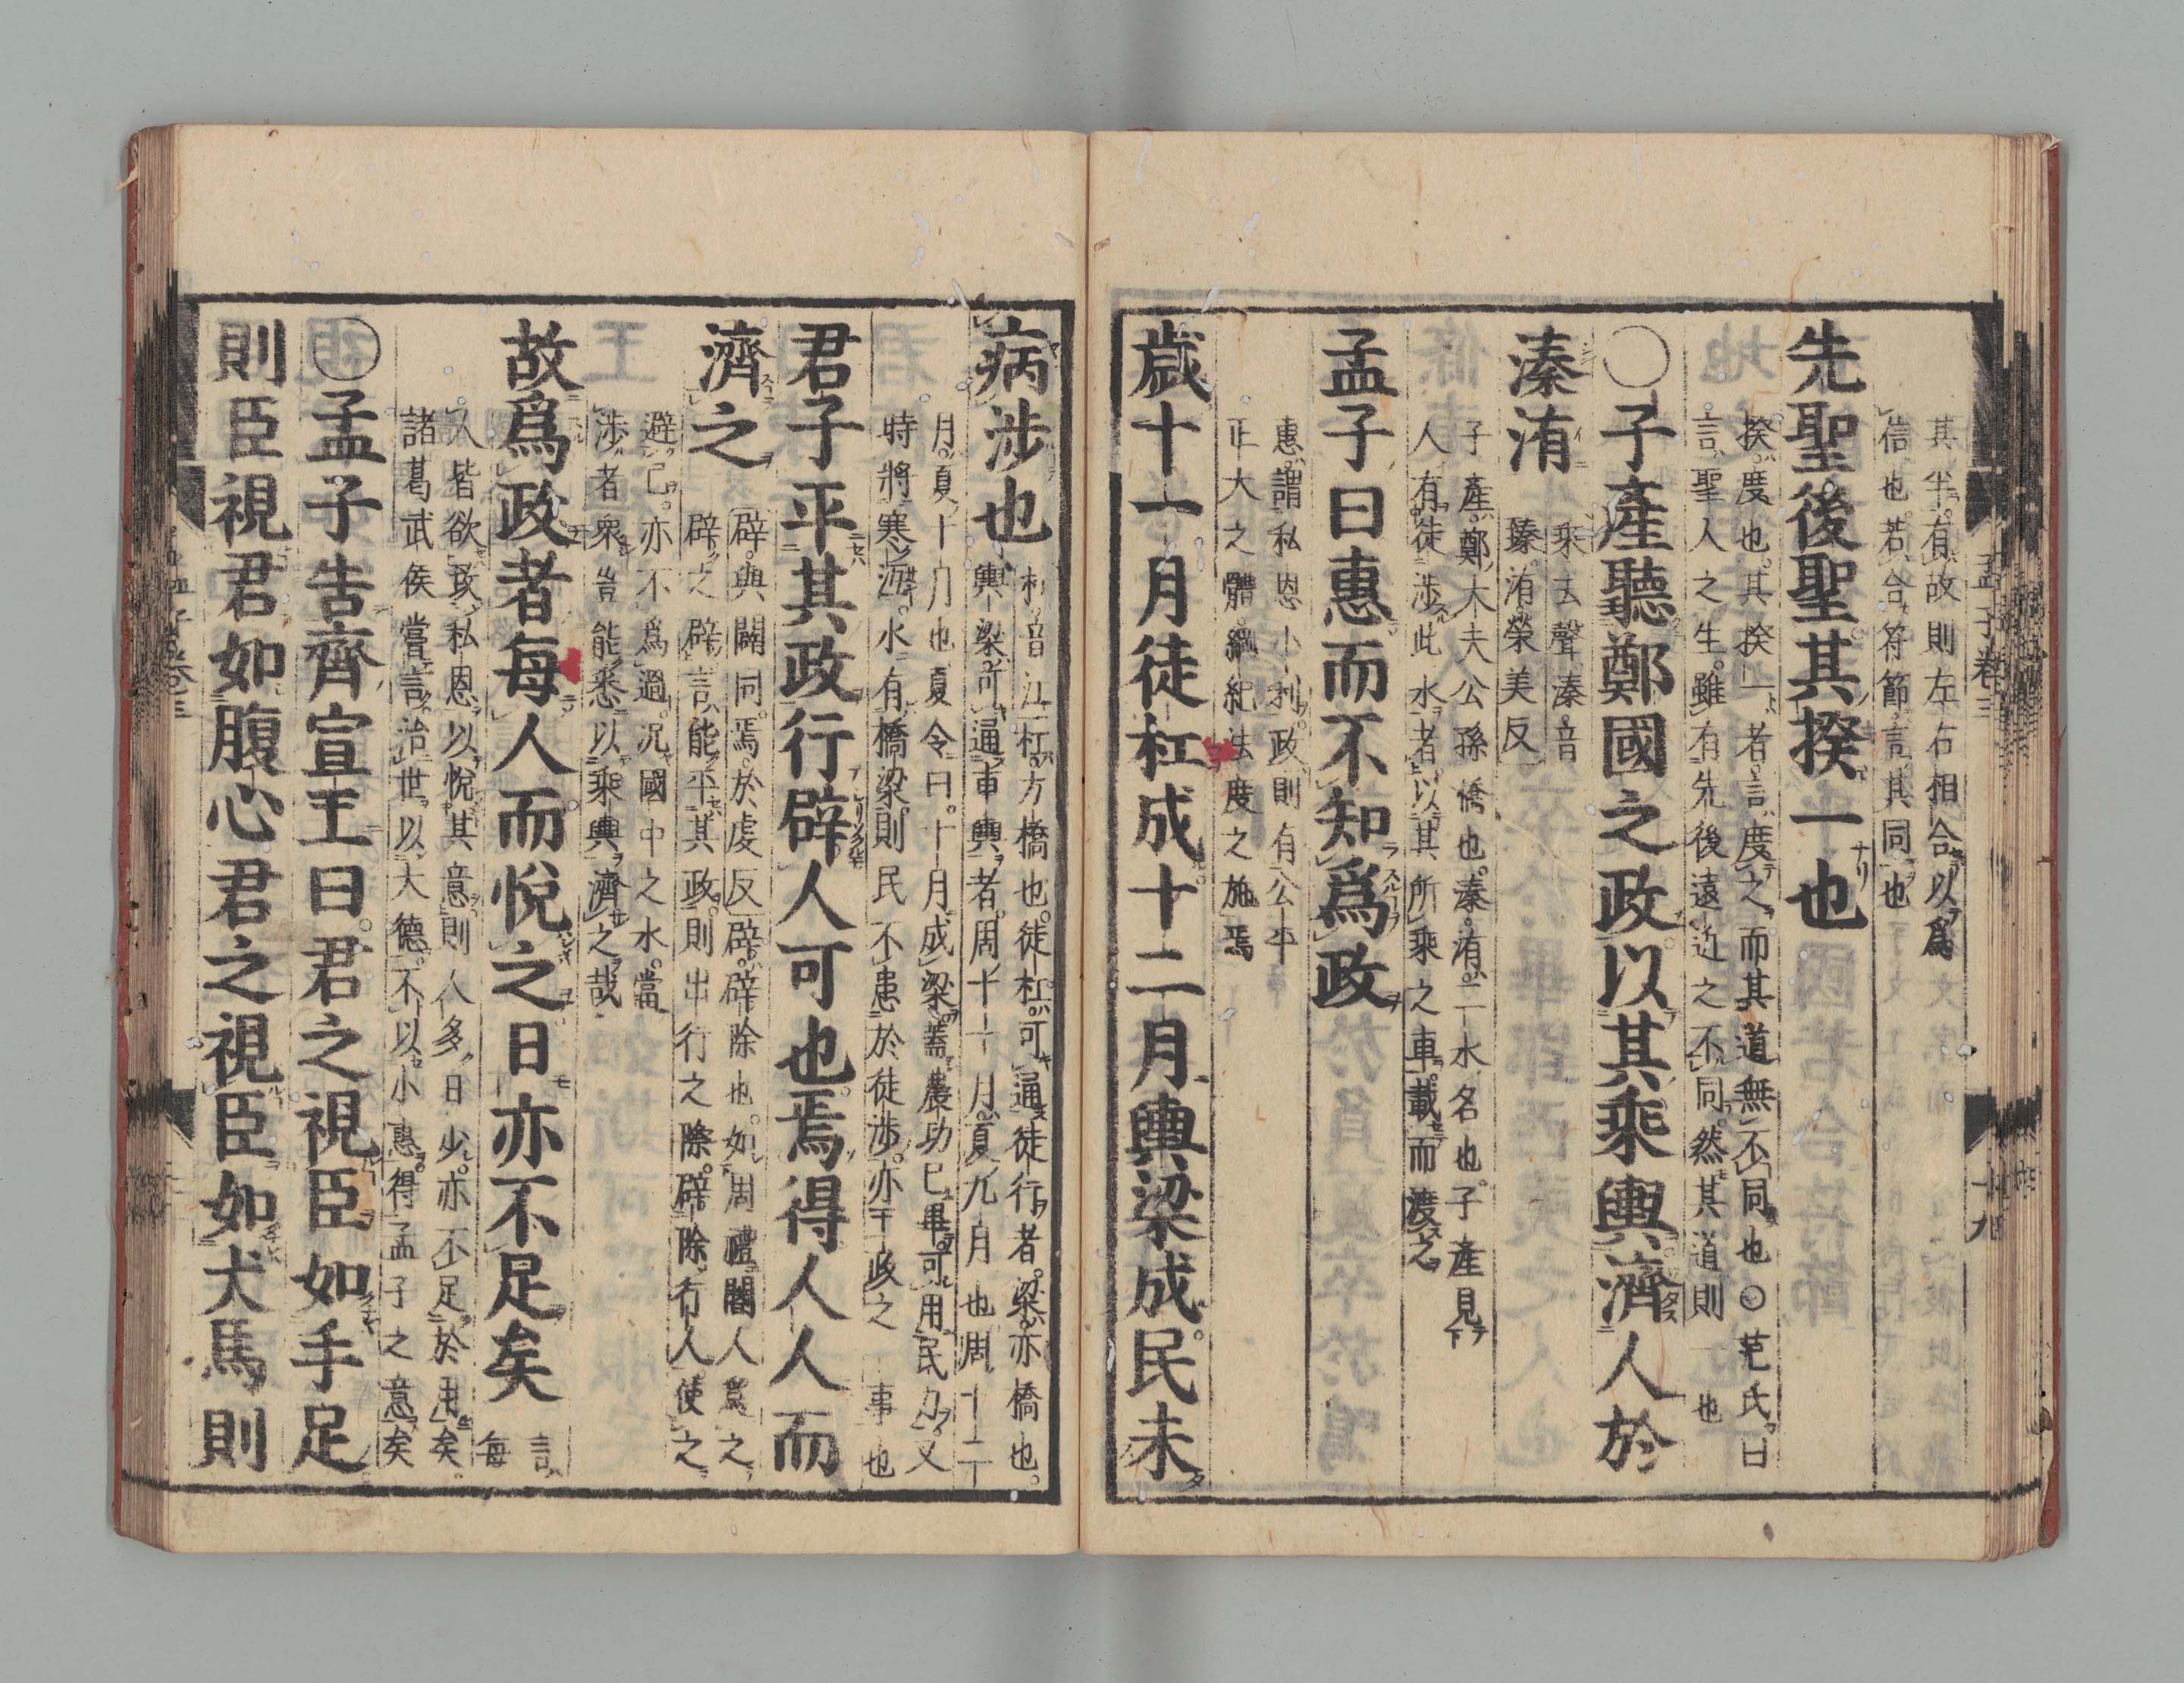 其半有故則左右相合以爲
信也若合符節言其同也
先聖後聖其揆一也
揆度也其揆一者言度之而其道無不同也○范氏曰
言聖人之生雖有先後遠近之不同然其道則一也
○子產聽鄭國之政以其乘輿濟人於
溱洧
乘去聲溱音
臻洧榮美反
子產鄭大夫公孫僑也溱洧二水名也子產見
人有徒涉此水者以其所乘之車載而渡之
孟子曰惠而不知爲政
惠謂私恩小利政則有公平
正大之體綱紀法度之施焉
歲十一月徒杠成十二月輿梁成民未
孟子卷三
十九
病涉也
杠音江杠方橋也徒杠可通徒行者梁亦橋也
輿梁可通車輿者周十一月夏九月也周十二
月夏十月也夏令曰十月成梁蓋農功已畢可用民力又
時將寒沍水有橋梁則民不患於徒涉亦王政之一事也
君子平其政行辟人可也焉得人人而
濟之
辟與闢同焉於虔反辟辟除也如周禮閽人爲之
辟之辟言能平其政則出行之際辟除行人使之
避己亦不爲過況國中之水當
涉者衆豈能悉以乘輿濟之哉
故爲政者每人而悅之日亦不足矣
言
每
人皆欲致私恩以悅其意則人多日少亦不足於用矣
諸葛武侯嘗言治世以大德不以小惠得孟子之意矣
○孟子告齊宣王曰君之視臣如手足
則臣視君如腹心君之視臣如犬馬則